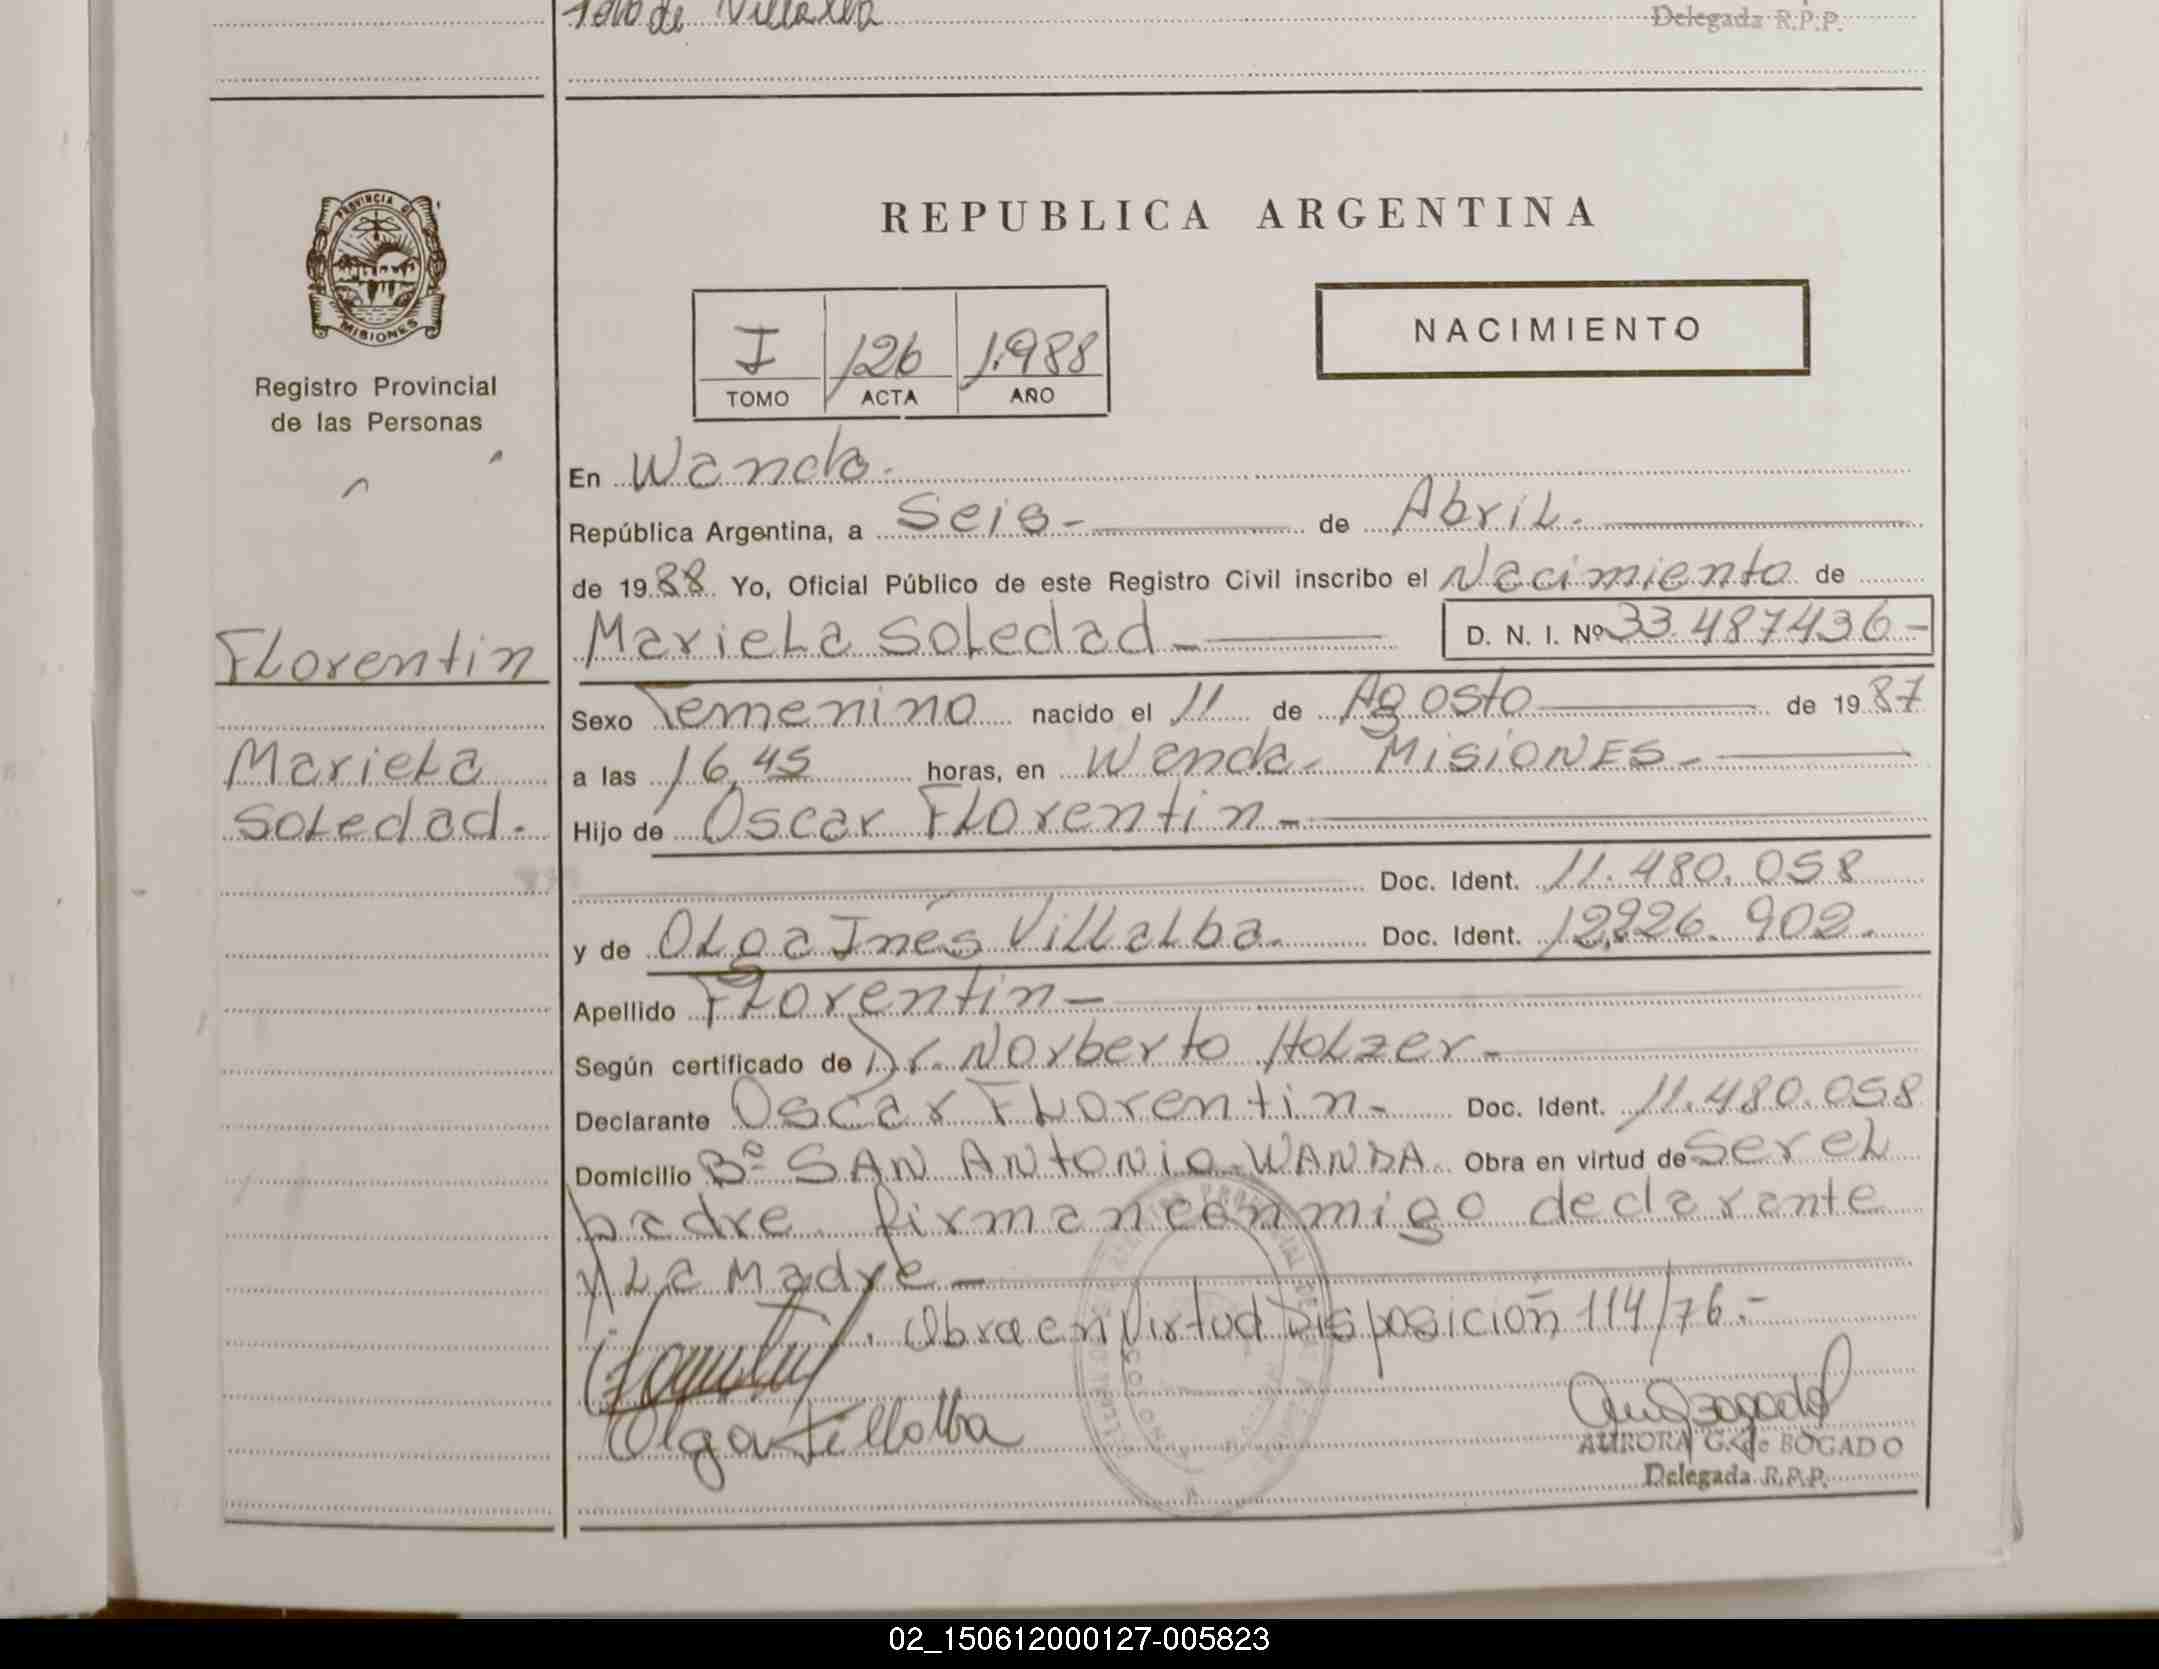 Toto de Villalba
Delegada R.P.P.
PROVINCIA DE
MISIONES
Registro Provincial
de las Personas
REPUBLICA ARGENTINA
NACIMIENTO
I 126 1.988
TOMO ACTA AÑO
En Wanda.
República Argentina, a Seis- de Abril.
de 1988 Yo, Oficial Público de este Registro Civil inscribo el Nacimiento de
Florentin
Mariela Soledad - D. N. I. Nº 33.487436-
Sexo Femenino nacido el 11 de Agosto de 1987
Mariela
Soledad.
a las 16,45 horas, en Wanda- MISIONES-
Hijo de Oscar Florentin-
Doc. Ident. 11.480.058
y de Olga Inés Villalba. Doc. Ident. 12.926.902.
Apellido Florentin-
Según certificado de Dr. Norberto Holzer-
Declarante Oscar Florentin- Doc. Ident. 11.480.058
Domicilio Bº SAN ANTONIO-WANDA Obra en virtud de ser el
padre. firman conmigo declarante
y La Madre-
. Obra en Virtud Disposición 114/76.-
Olga Villalba
AURORA G. de BOGADO
Delegada R.P.P.
02_150612000127-005823